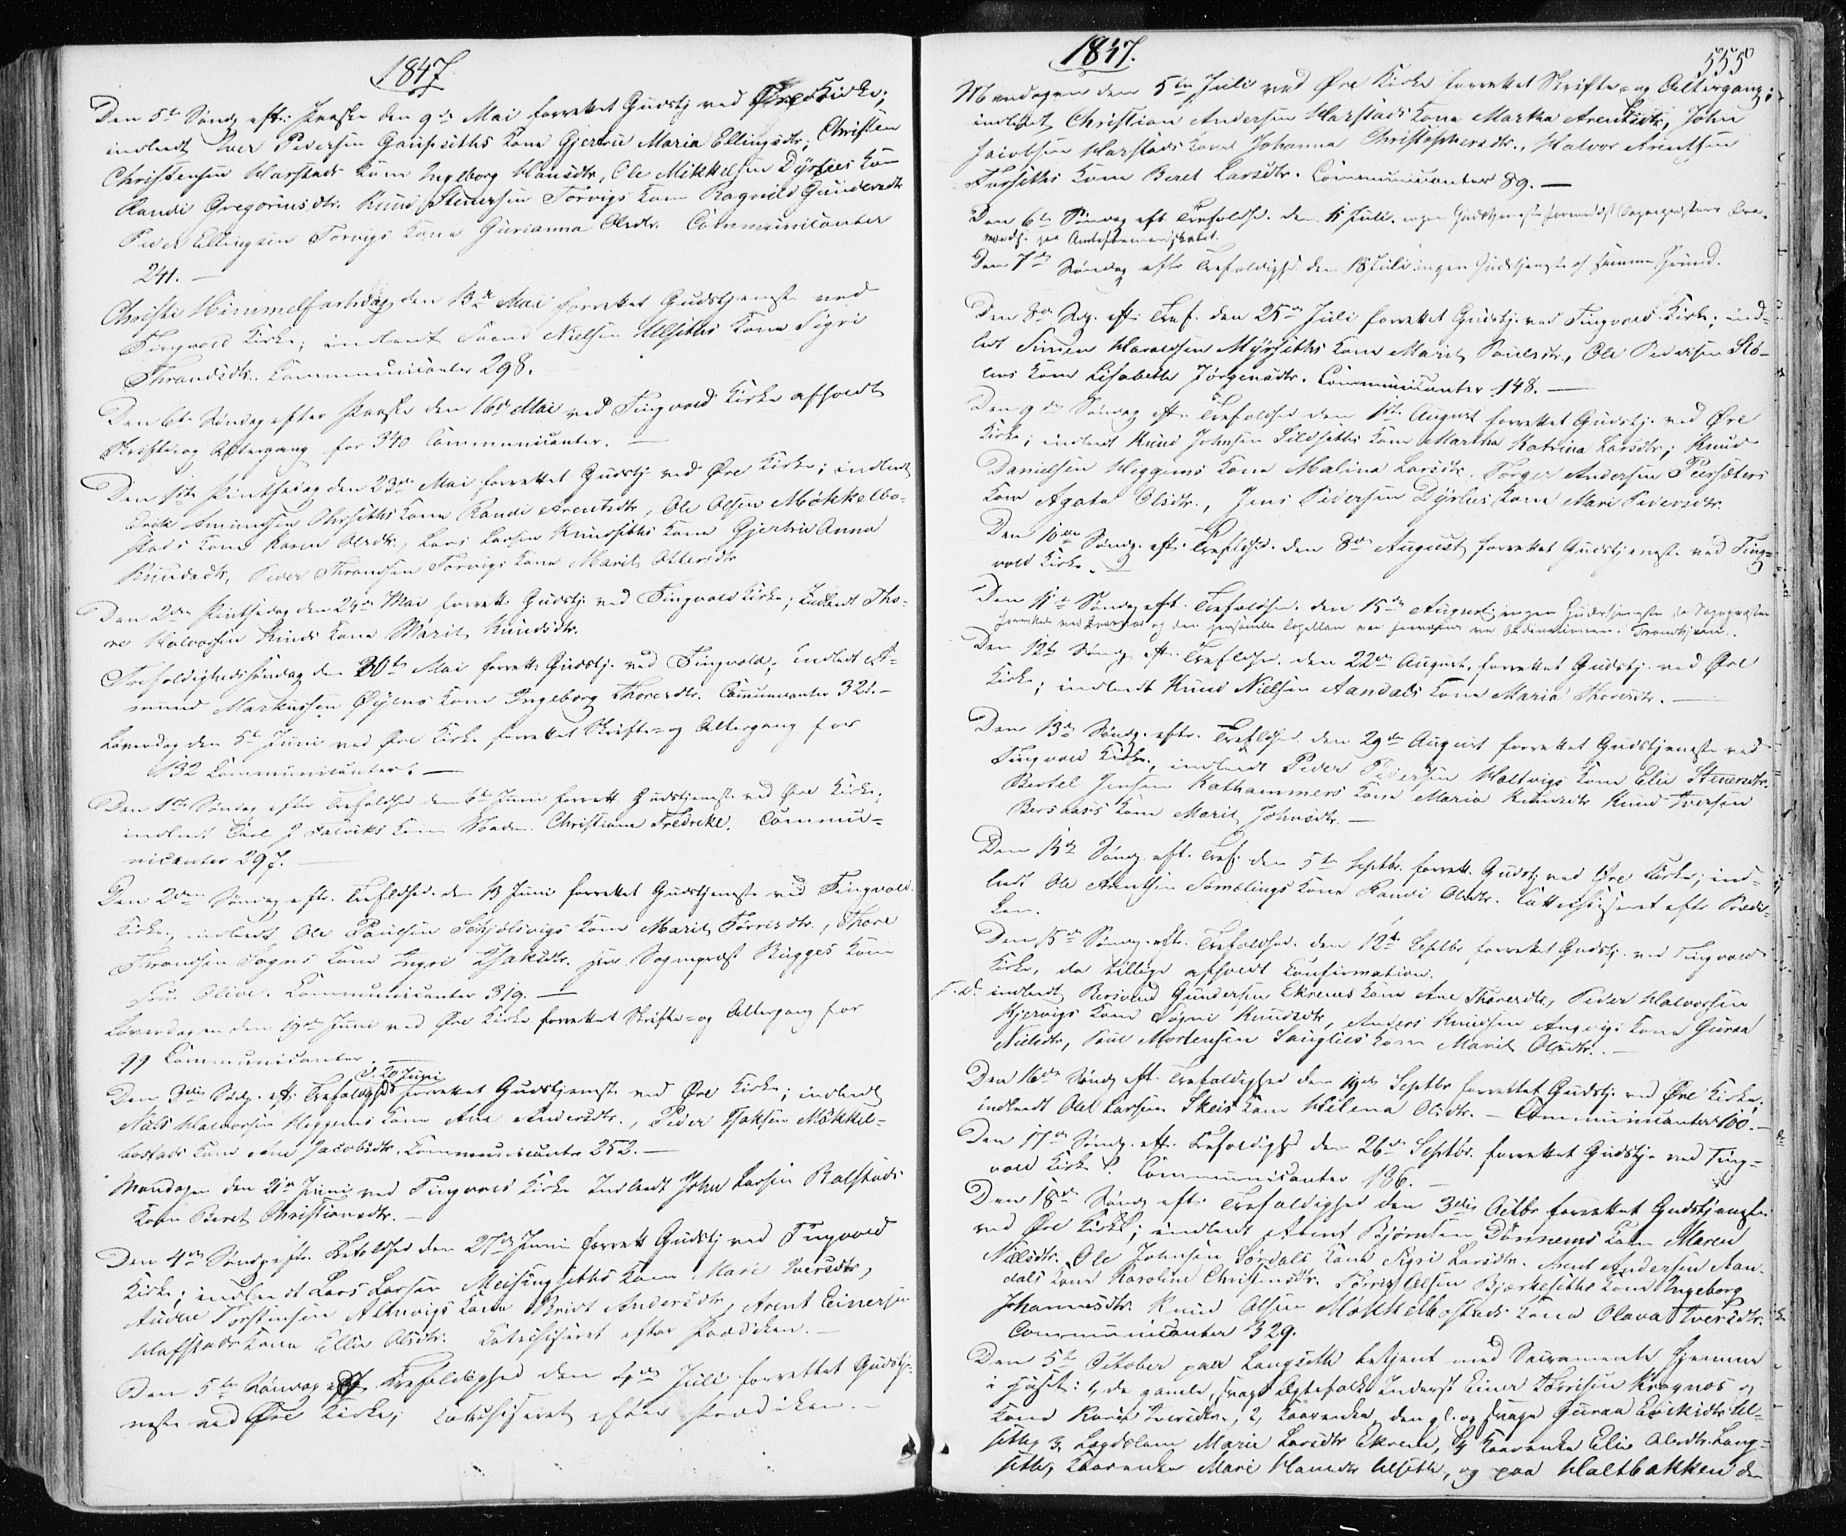 1847.
Den 5te Søndg eft. Paaske den 9de Mai forrettet Gudstj ved Øre Kirke;
indledt Iver Pedersen Gaupsæths Kone Gjertru Maria Ellingsdtr, Christen
Christensen Harstads Kone Ingeborg Hansdtr, Ole Mikkelsen Dyrlies Kone
Randi Gregoriusdtr. Knud Steners͏en Torvigs Kone Ragnild Gundersdtr
Peder Ellingsen Torvigs Kone Gurianna Olsdtr. Communicanter
241. —
Christi Himmelfartsdag den 13de Mai forrettet Gudstjeneste ved
Tingvold Kirke; indledt Svend Nielsen Ulsæths Kone Sigri
Thrandsdtr. Communicanter 298.
Den 6te Søndag efter Paaske den 16de Mai ved Tingvold Kirke afholdt
Skrifte og Altergang for 340 Communicanter. —
Den 1ste Pintsedag den 23de Mai forrettet Gudstj ved Øre Kirke; indledt
Amundsen Kone Randi Arentsdtr, Ole Olsen Møkkelbo-
stads Kone Karen Olsdtr, Lars Larsen Knudsæths Kone Gjertru Anna
Knudsdtr, Peder Thrandsen Torvigs Kone Marit Ottersdtr
Den 2den Pintsedag den 24de Mai forrett. Gudstj ved Tingvold Kirke; Indledt Tho-
re Halvorsen Kone Marit Knudsdtr.
Trefoldighedssøndag den 30te Mai forrett. Gudstj. ved Tingvold; indledt A-
mund Markussen Øyens Kone Ingeborg Thoresdtr. Communicanter 321. —
Løverdag den 5te Juni ved Øre Kirke forrettet Skrifte- og Altergang for
132 Communicanter. —
Den 1ste Søndag efter Trefoldhed den 6te Juni forrett Gudstjeneste ved Øre Kirke;
indledt Carl J Falviks Kone Madm. Christiane Fredrikke. Commu-
nicanter 297. —
Den 2den Søndag eftr. Trefoldhed. den 13 Juni forrettet Gudstjeneste ved Tingvold
Kirke, indledt Ole Paulsen Skjølsvigs Kone Marit Torresdtr., Thore
Thrandsen Kone Ingri Isaksdtr. Hr. Sognepræst Bugges Kone
Fru Olive. Communicanter 319. —
Løverdagen den 19de Juni ved Øre Kirke forrettet Skrifte- og Altergang for
99 Communicanter. —
d. 20 Juni
Den 3die Søndg. eft. Trefoldighd forrettet Gudstjeneste ved Øre Kirke; indledt
Niels Halvorsen Heggems Kone Ane Andersdtr., Peder Isaksen Møkkel-
bostads Kone Ane Jacobsdtr. Communicanter 252. —
Mandagen den 21de Juni ved Tingvold Kirke Indledt John Larsen Rolfstads
Kone Beret Christiansdtr. —
Den 4de Søndg eftr. Trefoldhed den 27de Juni forrett Gudstj ved Tingvold
Kirke; indledt Lars Larsen Meisingsæths Kone Mari Iversdtr,
Torstensen Kone Bridt Andersdtr, Arent Einersen
Hafstads Kone Ellie Olsdtr. Catechiseret efter Prædiken. —
Den 5te Søndag eft. Trefoldighed den 4de Juli forrettet Gudstje-
neste ved Øre Kirke; Catechiseret efter Prædiken. —
1847.
555
Mandagen den 5te Juli ved Øre Kirke forrettet Skrifte- og Altergang;
indledt Christian Andersen Harstads Kone Martha Arentsdtr, John
Jacobsen Harstads Kone Johanna Christophersdtr., Halvor Arentsen
Kone Beret Larsdtr. Communicanter 89. —
Den 6te Søndag eft Trefoldhd. den 11 Juli ingen Gudstjeneste formedelst Sognepræstens Fra-
Den 7de Søndag efter Trefoldighd. den 18 Juli ingen Gudstjeneste af samme Grund.
Den 8de Søg. eft. Tref. den 25de Juli forrettet Gudstj. ved Tingvold Kirke; ind-
ledt Simen Haraldsen Myrsæths Kone Marit Povelsdtr, Ole Pedersen Stø-
lens Kone Lisabeth Jørgensdtr. Communicanter 148. —
Den 9de Søndag eft. Trefoldhed den 1ste August forrettet Gudstj. ved Øre
Kirke; indledt Knud Johnsen Sildsæths Kone Martha Katrina Larsdtr; Knud
Danielsen Heggems Kone Malina Larsdtr, Torger Andersen
Kone Agata Olsdtr., Jens Pedersen Dyrlies Kone Mari Pedersdtr.
Den 10de Søndg. eft. Trefoldhd. den 8de August forrettet Gudstjeneste ved Ting-
vold Kirke. —
Den 11te Søndg eft. Trefoldhd. den 15de August ingen Gudstjeneste da Sognepræsten
Den 12te Søndg. eft. Trefoldhd. den 22de August forrettet Gudstj. ved Øre
Kirke; indledt Knud Nielsen Aandals Kone Maria Thoresdtr. —
Den 13de Søndg. eftr. Trefoldhd. den 29de August forrettet Gudstjeneste ved
Tingvold Kirke, indledt Peder Pedersen Holtvigs Kone Elie Stenersdtr.
Bertel Jensen Rathammers Kone Maria Knudsdtr Knud Iversen
Bersaas's Kone Marit Johnsdtr. —
Den 14de Søndg. eft. Tref. den 5te Septbr. forrett. Gudstj ved Øre Kirke; ind-
ledt Ole Arentsen Kone Randi Olsdtr. Catechiseret eftr Prædi-
ken.
Den 15de Søndg. eftr. Trefoldhed. den 12te Septbr forrettet Gudstj. ved Tingvold
Kirke, da tillige afholdt Confirmation.
S. D. indledt Gundersen Ekrems Kone Ane Thoresdtr, Peder Halvorsen
Hjervigs Kone Knudsdtr, Anders Knudsen Angvigs Kone Guraa
Nielsdtr, Paul Mortensen Kone Marit Olsdtr. —
Den 16de Søndg eft. Trefoldighed den 19de Septbr forrettet Gudstj. ved Øre Kirke;
indledt Ole Larsen Skeis Kone Helena Olsdtr. — Communicanter 100. —
Den 17de Søndg. eft. Trefoldighd den 26de Septbr. forrettet Gudstj. ved Ting-
vold Kirke. Communicanter 196. —
Den 18de Søndg eftr. Trefoldighed den 3die Octbr forrettet Gudstjeneste
ved Øre Kirke; indledt Arent Bjørnsen Dønnems Kone Maren
Nielsdtr. Ole Johnsen Sørdals Kone Sigri Larsdtr. Arent Andersen Aan-
dals Kone Karoline Christensdtr. Torris Olsen Bjerkesæths Kone Ingeborg
Johannesdtr. Knud Olsen Møkkelbostads Kone Olava Iversdtr.
Communicanter 329.
Den 5te October paa Langsæth betjent med Sacramentet hjemme
i Huset: 1, de gamle, svage Ægtefolk Inderst Einer Torrisen Kragnæs og
Kone Karen Iversdtr., 2, Kaarenke den gl. og svage Guraa Ul-
sæth, 3, Lægdslem Marie Larsdtr Ekrem, 4, Kaarenke Elie Olsdtr. Lang-
sæth, Kaarenke Mari Hansdtr Ulsæth, og paa Holtbakken den